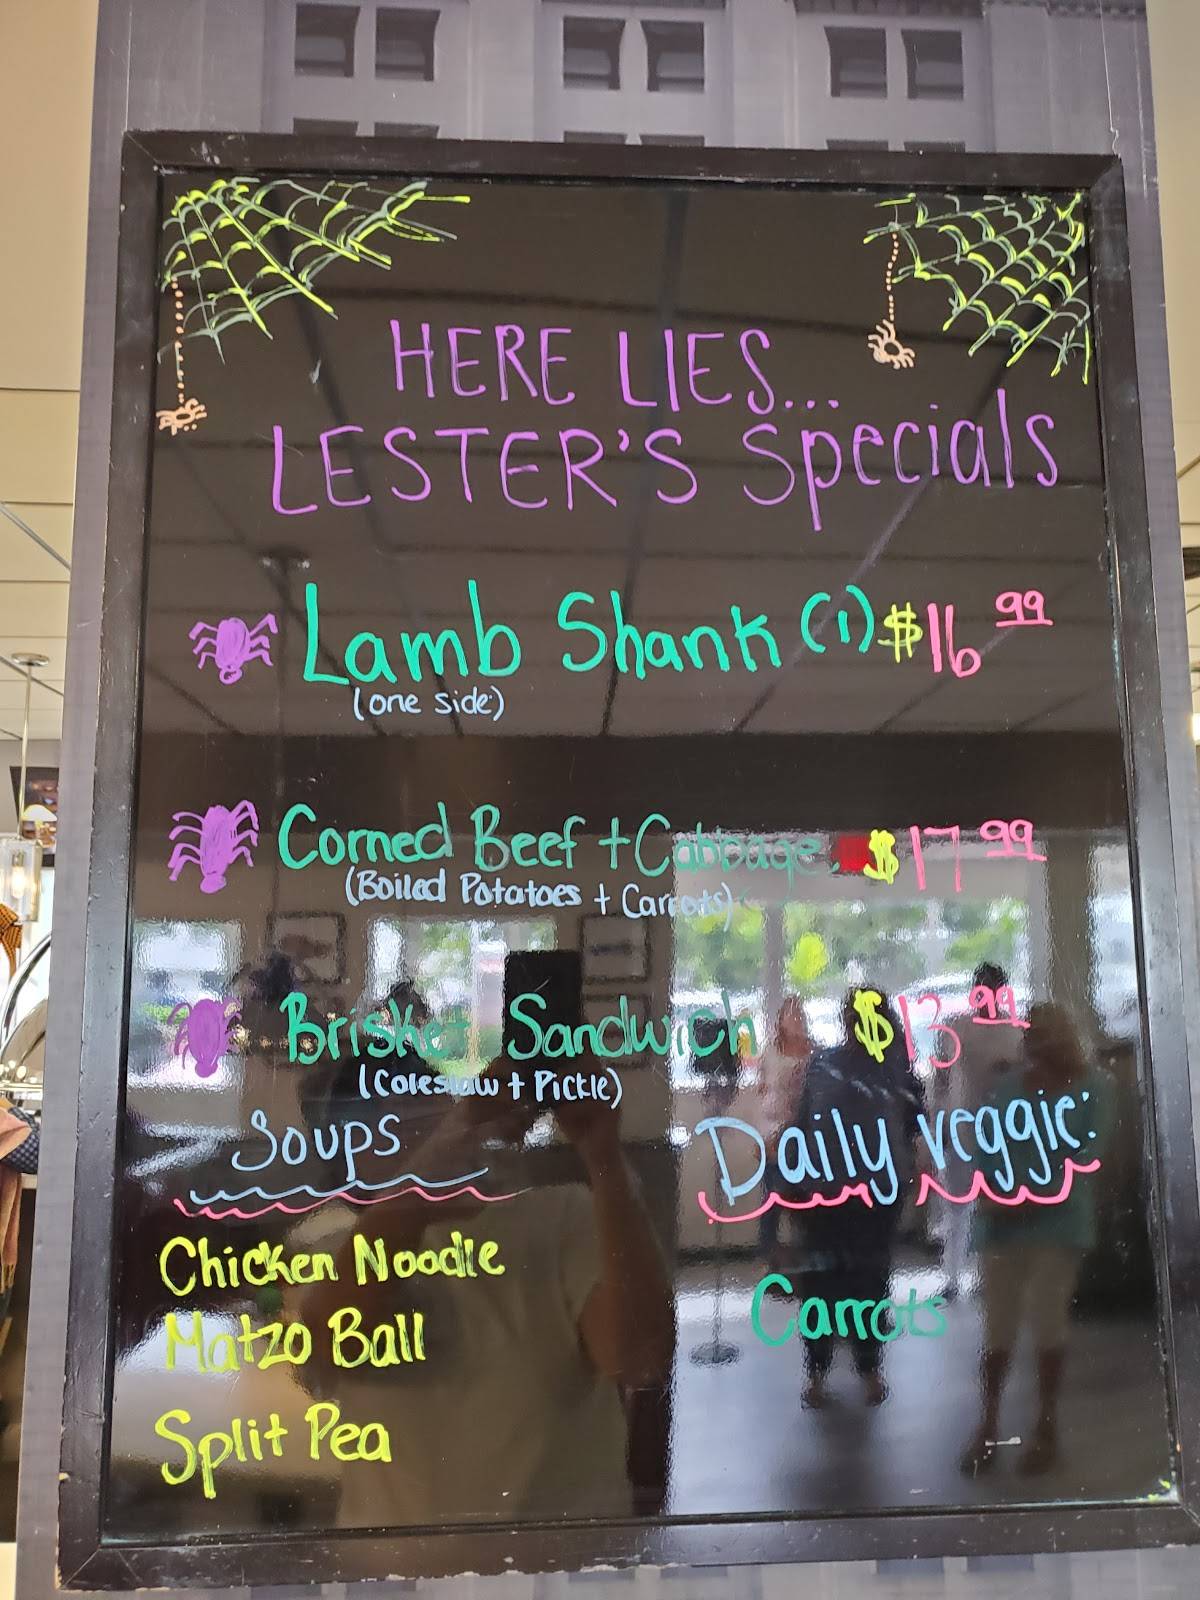 HERE LIES...
LESTER'S Specials
Lamb Shank (1) $16 99
(one side)
Corned Beef + Cabbage $17 99
(Boiled Potatoes + Carrots)
Brisket Sandwich $13 99
(Coleslaw + Pickle)
Soups
Chicken Noodle
Matzo Ball
Split Pea
Daily veggie:
Carrots